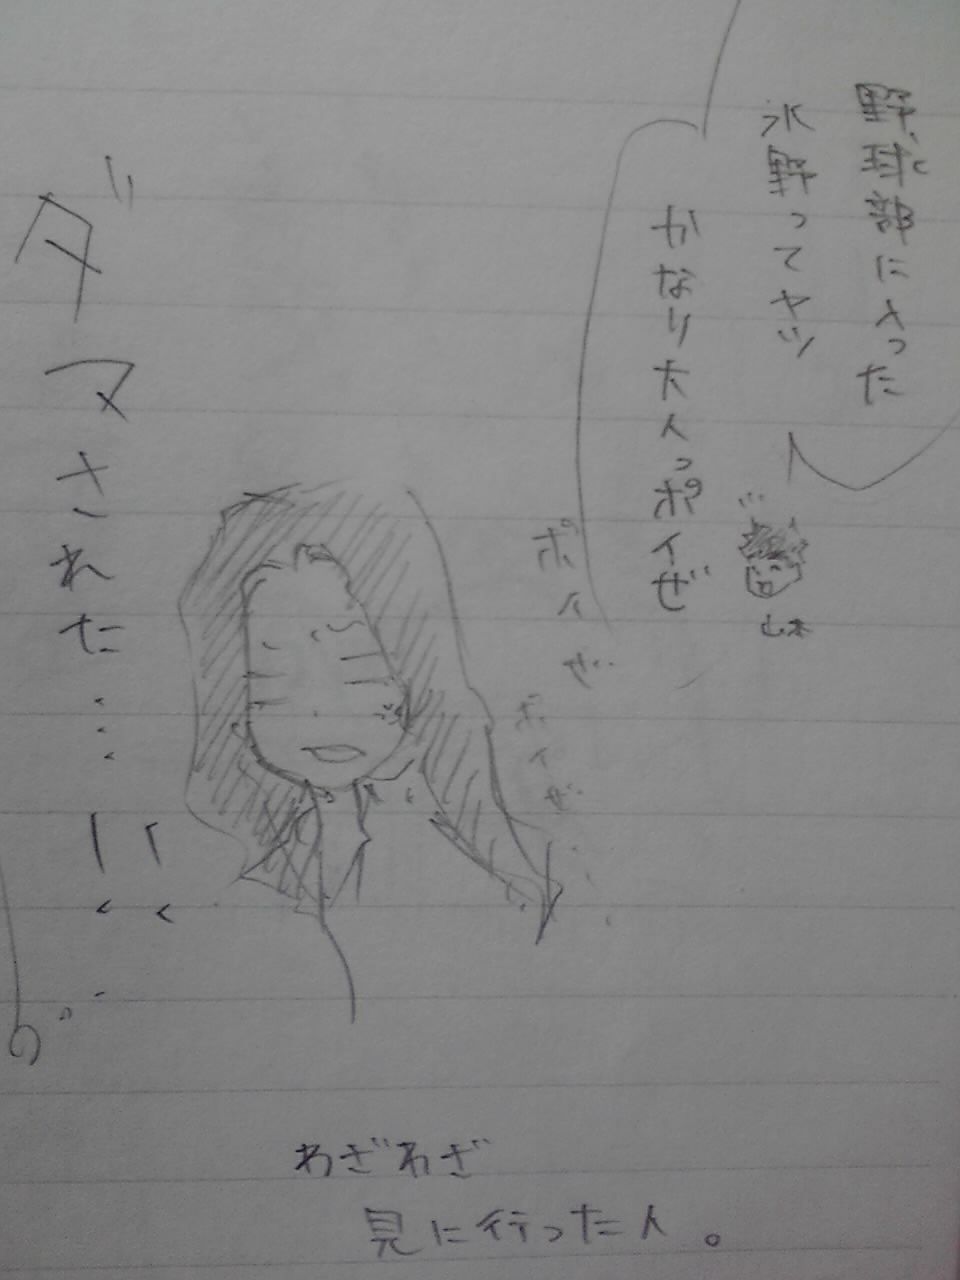 野球部に入った
水野ってヤツ
かなり大人っポイぜ
山本
ポイぜ
ポイぜ…
ダマされた…!!
わざわざ
見に行った人。